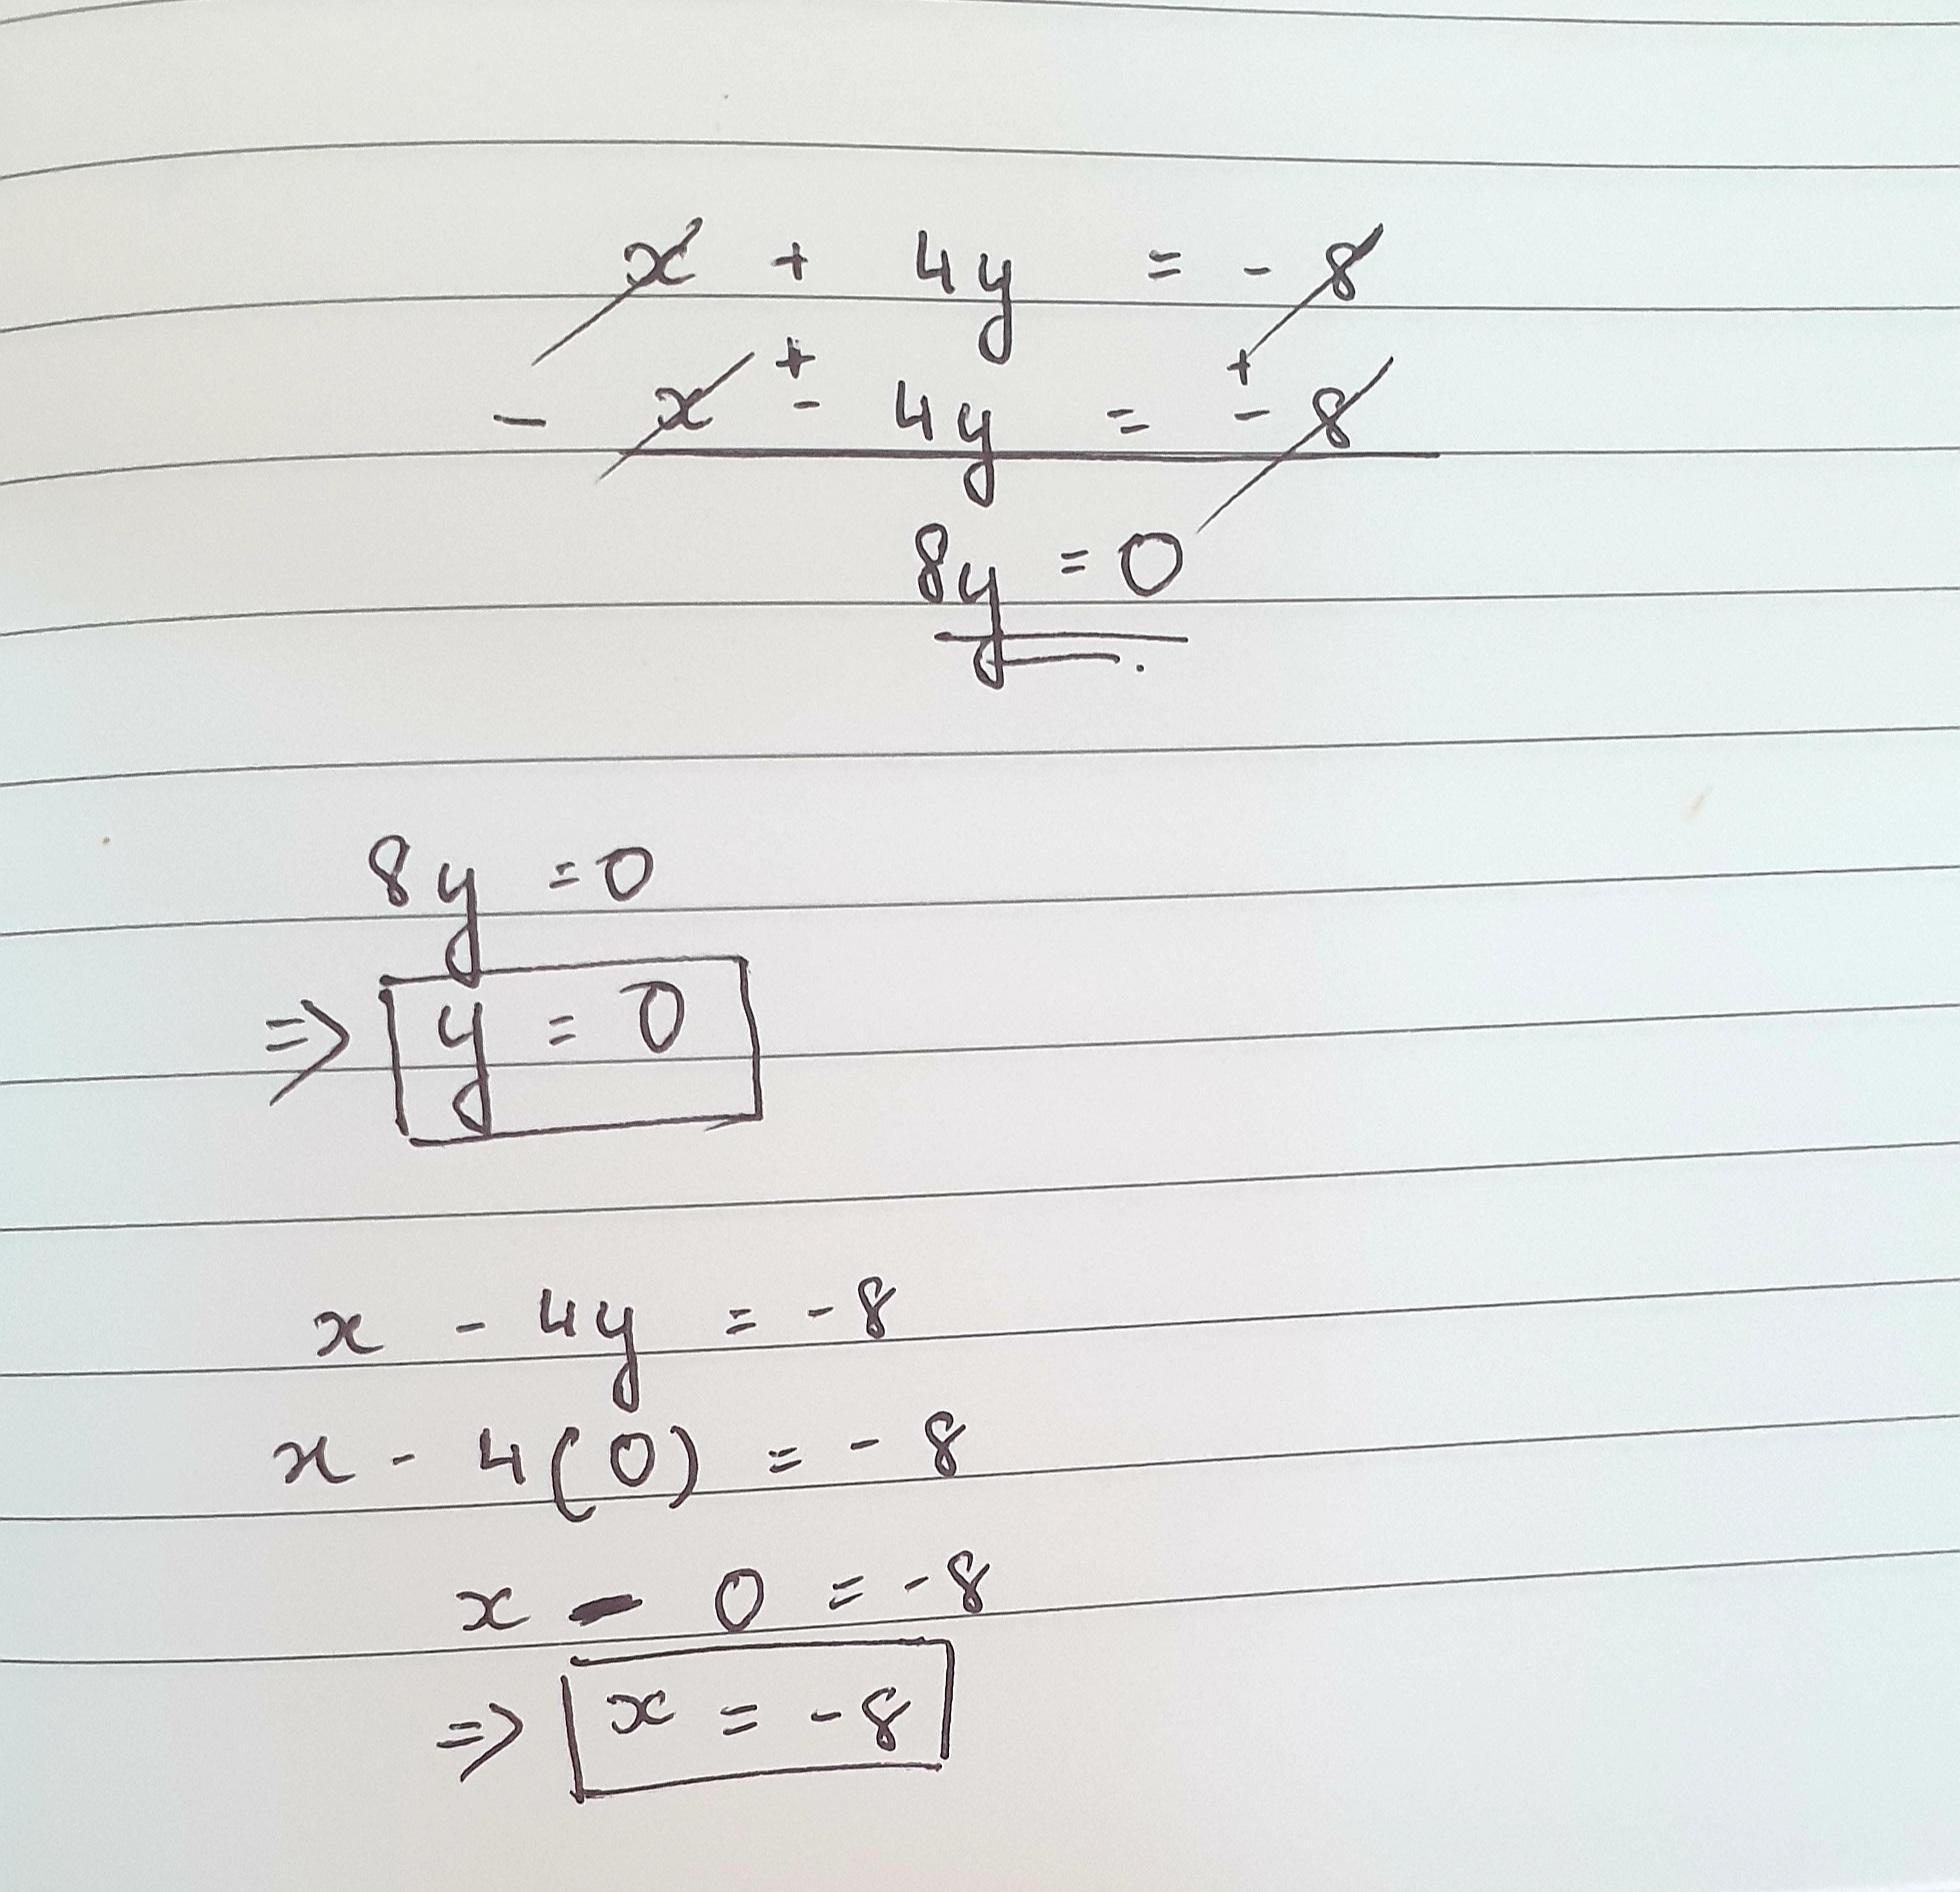 x + 4y = - 8
+ +
- x - 4y = - 8
8y = 0
8y = 0
⇒ y = 0
x - 4y = - 8
x - 4(0) = - 8
x - 0 = - 8
⇒ x = - 8